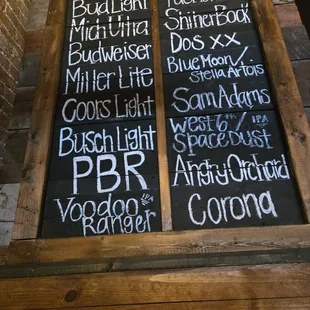 Bud Light
Mich Ultra
Budweiser
Miller Lite
Coors Light
Busch Light
PBR
Voodoo
Ranger
Shiner Bock
Dos xx
Blue Moon /
Stella Artois
Sam Adams
West 6th IPA
Space Dust
Angry Orchard
Corona